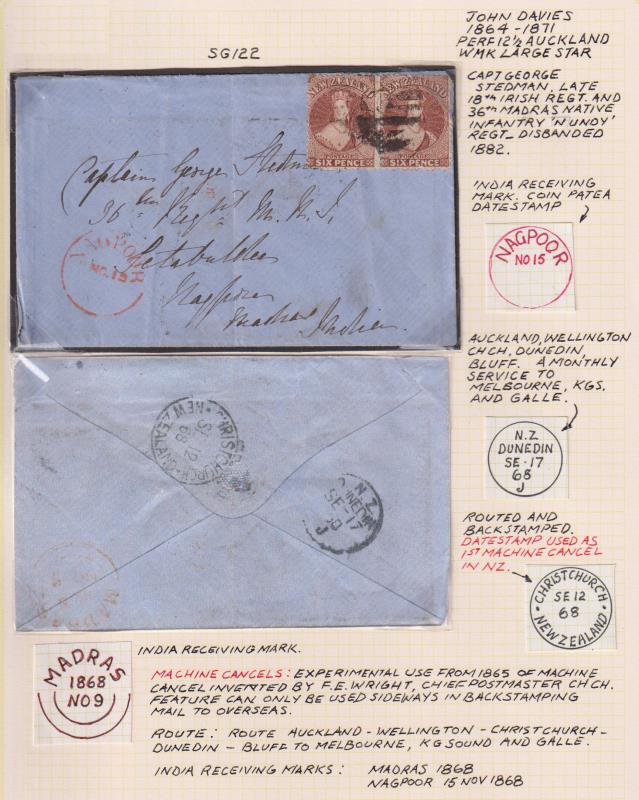 JOHN DAVIES
1864-1871
PERF 12½ AUCKLAND
WMK LARGE STAR
SG122
CAPT GEORGE
STEDMAN, LATE
18TH IRISH REGT. AND
36TH MADRAS NATIVE
INFANTRY 'NUNDY'
REGT_ DISBANDED
1882.
NEW ZEALAND
POSTAGE
SIX PENCE
NEW ZEALAND
POSTAGE
SIX PENCE
Captain George Stedman
36th Regt M. N. I,
Nagpore
Madras India
NAGPOOR
NO.15
INDIA RECEIVING
MARK. COIN PATEA
DATESTAMP
NAGPOOR
NO 15
AUCKLAND, WELLINGTON
CHCH, DUNEDIN,
BLUFF. A MONTHLY
SERVICE TO
MELBOURNE, KGS.
AND GALLE.
N.Z
DUNEDIN
SE-17
68
J
CHRISTCHURCH
NEW ZEALAND
SE 12
68
N.Z
DUNEDIN
SE-17
68
J
ROUTED AND
BACKSTAMPED.
DATESTAMP USED AS
1ST MACHINE CANCEL
IN NZ.
CHRISTCHURCH
SE 12
68
NEW ZEALAND
MADRAS
MADRAS
1868
NO 9
INDIA RECEIVING MARK.
MACHINE CANCELS: EXPERIMENTAL USE FROM 1865 OF MACHINE
CANCEL INVERTED BY F.E. WRIGHT, CHIEF POSTMASTER CHCH.
FEATURE CAN ONLY BE USED SIDEWAYS IN BACKSTAMPING
MAIL TO OVERSEAS.
ROUTE: ROUTE AUCKLAND - WELLINGTON - CHRISTCHURCH -
DUNEDIN - BLUFF TO MELBOURNE, KG SOUND AND GALLE.
INDIA RECEIVING MARKS: MADRAS 1868
NAGPOOR 15 NOV 1868